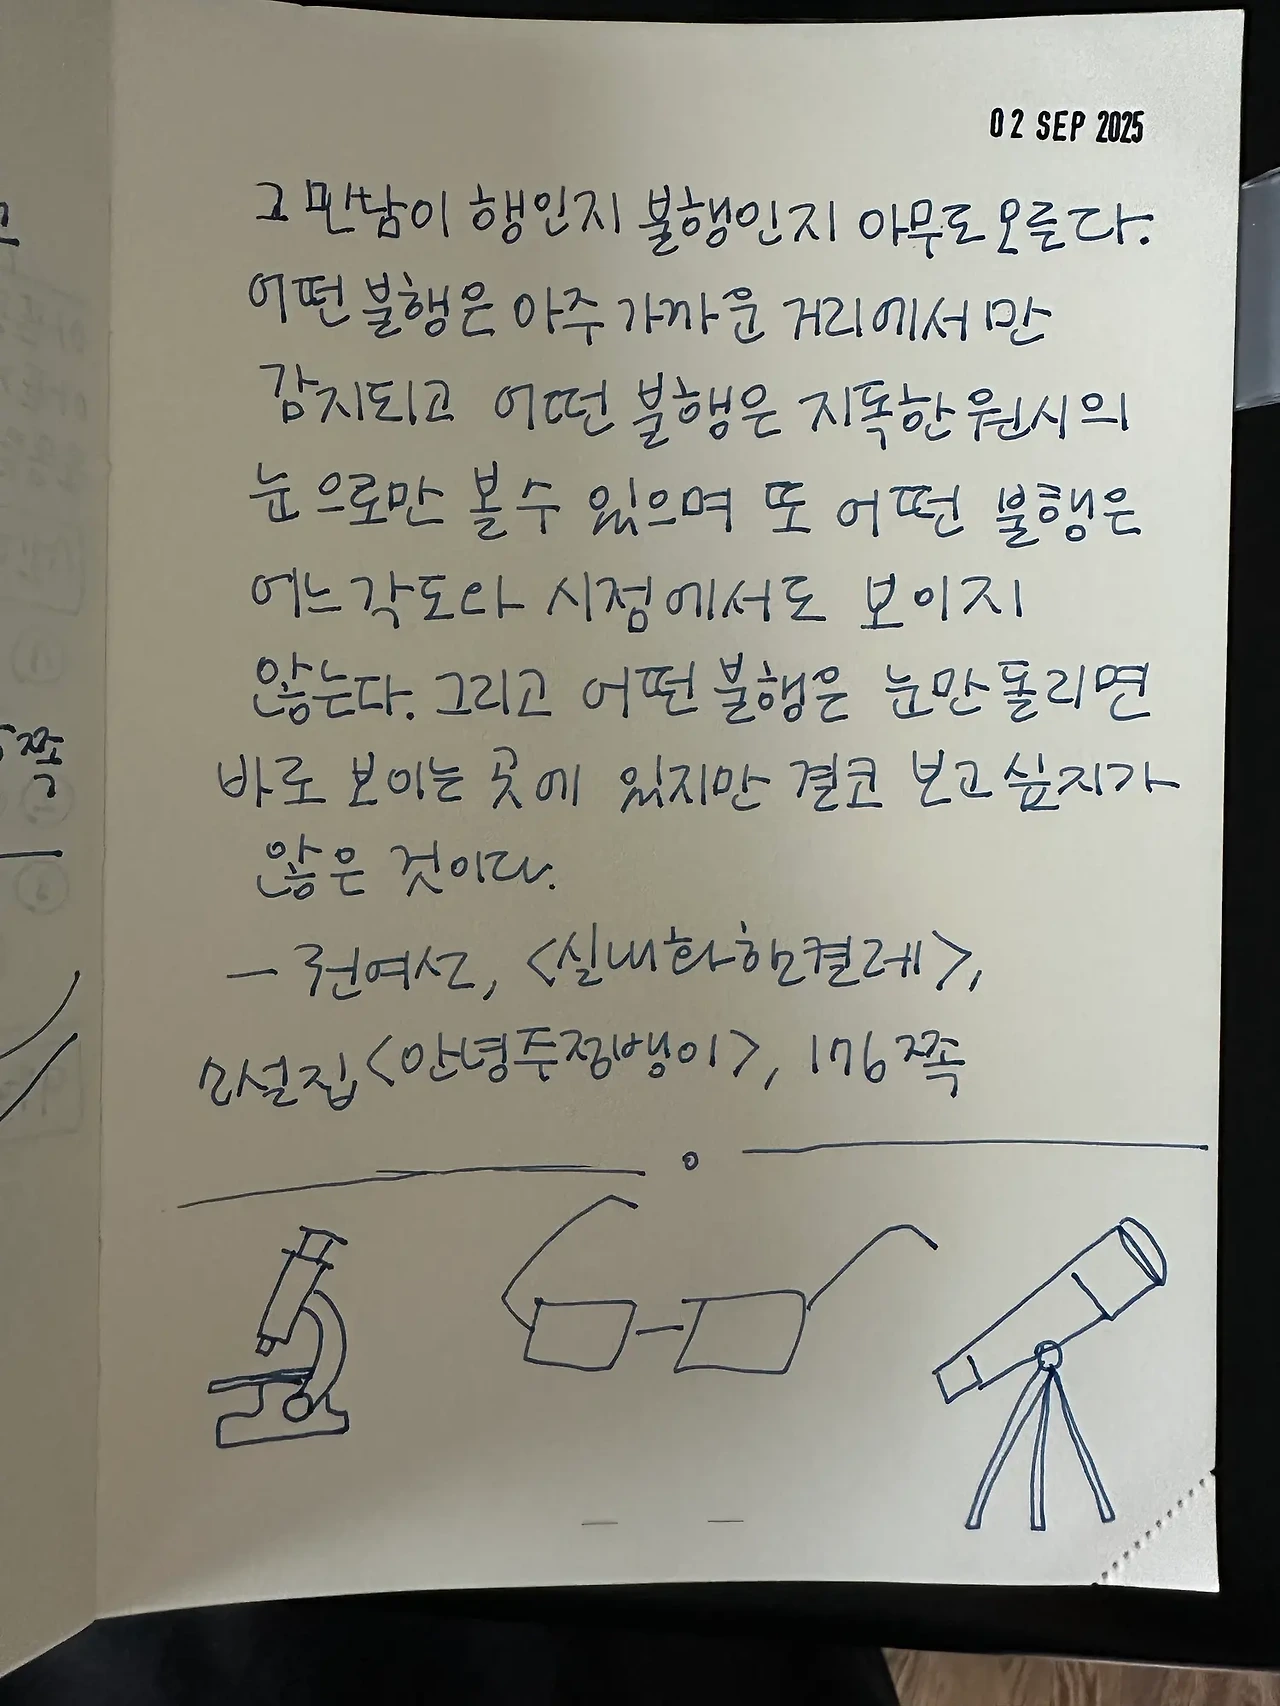 02 SEP 2025
그 만남이 행인지 불행인지 아무도 모른다.
어떤 불행은 아주 가까운 거리에서만
감지되고 어떤 불행은 지독한 원시의
눈으로만 볼 수 있으며 또 어떤 불행은
어느 각도와 시점에서도 보이지
않는다. 그리고 어떤 불행은 눈만 돌리면
바로 보이는 곳에 있지만 결코 보고 싶지가
않은 것이다.
— 권여선, <실내화 한켤레>,
소설집 <안녕 주정뱅이>, 176쪽
쪽